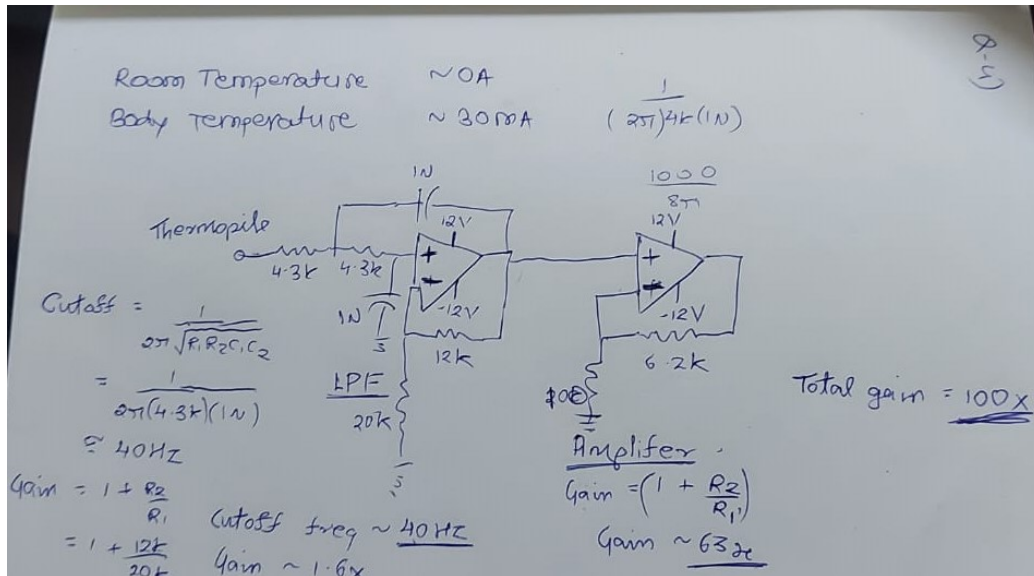 Q-4)
Room Temperature ~0A
Body Temperature ~30mA
1
(2π)4k(1N)
1000
8π
Thermopile
4.3k
4.3k
1N
12V
+
-12V
1N
12k
LPF
20k
12V
+
-12V
6.2k
Cutoff = 1
2π√R1R2C1C2
= 1
2π(4.3k)(1N)
≅ 40Hz
Gain = 1 + R2
R1
= 1 + 12k
20k
Cutoff freq ~ 40Hz
Gain ~ 1.6x
Amplifer
Gain = (1 + R2
R1)
Gain ~ 63x
Total gain = 100x